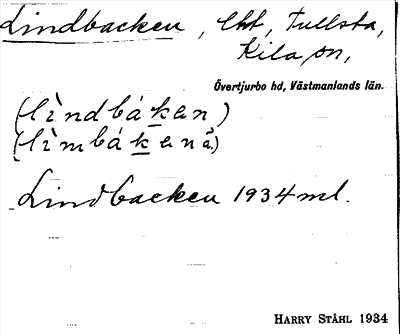 Lindbacken, Tullsta,
Kila sn,
Övertjurbo hd, Västmanlands län.
(lìndbákan)
(lìmbákanå)
Lindbacken 1934 ml.
HARRY STÅHL 1934